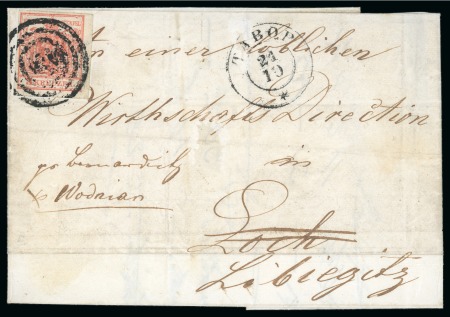 An einer löblichen
TABOR
21
10
Wirthschafts Direction
in
Wodnian
Loch
Libiegitz